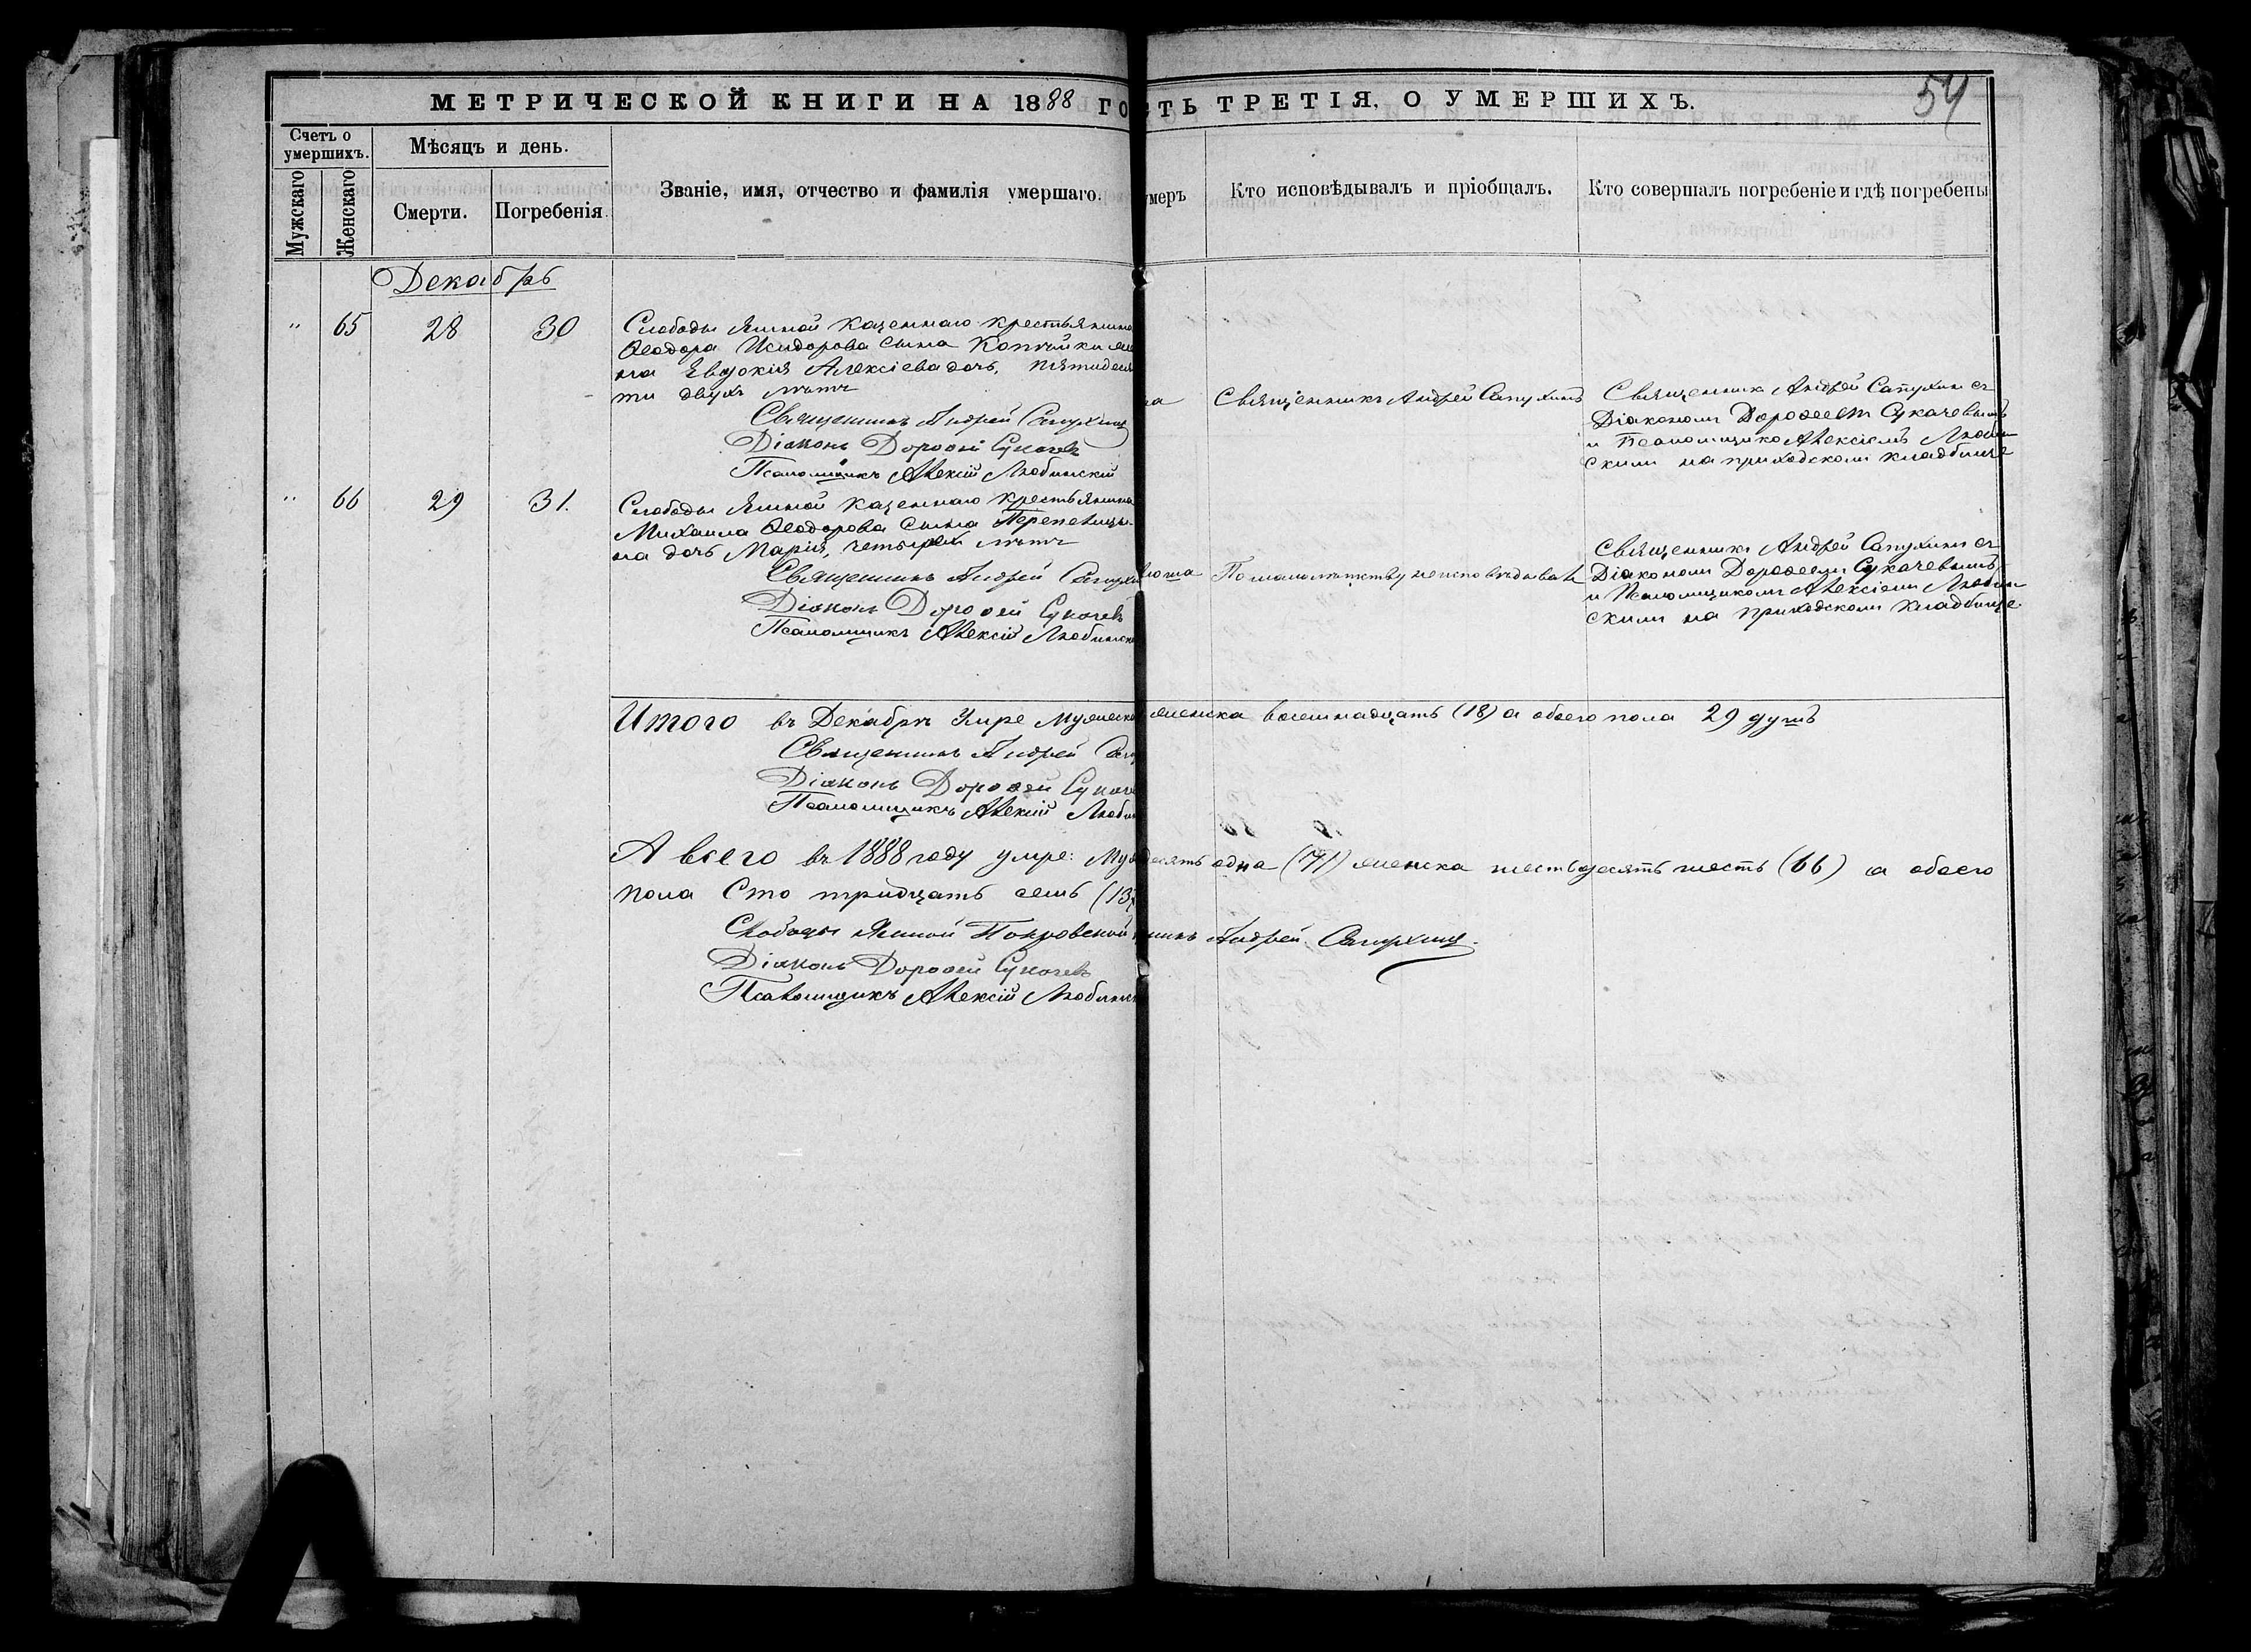 МЕТРИЧЕСКОЙ КНИГИ НА 1888 ГО
СТЬ ТРЕТІЯ, О УМЕРШИХЪ.
54
Счетъ о умершихъ.
Мужскаго
Женскаго
Мѣсяцъ и день.
Смерти.
Погребенія.
Званіе, имя, отчество и фамилія умершаго.
умеръ
Кто исповѣдывалъ и пріобщалъ.
Кто совершалъ погребеніе и гдѣ погребены
Декабрь
" 65 28 30
Слободы Ямной казеннаго крестьянина
Ѳеодора Исидорова сына Копчійки же
на Евдокія Алексіева дочь, пятидеся
ти двухъ лѣтъ
Священникъ Андрей Сапухинъ
Діаконъ Дороѳей Сукачевъ
Псаломщикъ Алексій Любинскій
а
Священникъ Андрей Сапухинъ
Священникъ Андрей Сапухинъ съ
Діакономъ Дороѳеемъ Сукачевымъ
и Псаломщико Алексіемъ Любин
скимъ на приходскомъ кладбище
" 66 29 31.
Слободы Ямной казеннаго крестьянина
Михаила Ѳеодорова сына
на дочь Марія, четырехъ лѣтъ
Священникъ Андрей Сапухи
Діаконъ Дороѳей Сукачевъ
Псаломщикъ Алексій Любинск
По малолѣтству неисповѣдывал
Священникъ Андрей Сапухинъ съ
Діакономъ Дороѳеемъ Сукачевымъ
и Псаломщикомъ Алексіемъ Любин
скимъ на приходскомъ кладбище.
Итого въ Декабрѣ умре Мужеска женска восемнадцать (18) а обоего пола 29 душъ
Священникъ Андрей Сап
Діаконъ Дороѳей Сукаче
Псаломщикъ Алексій Любин
А всего въ 1888 году умре: Муж десять одна (71) женска шестьдесятъ шесть (66) а обоего
пола Сто тридцать семь (137
Слободы Ямной Покровской нникъ Андрей Сапухинъ.
Діаконъ Дороѳей Сукачевъ
Псаломщикъ Алексій Любинск